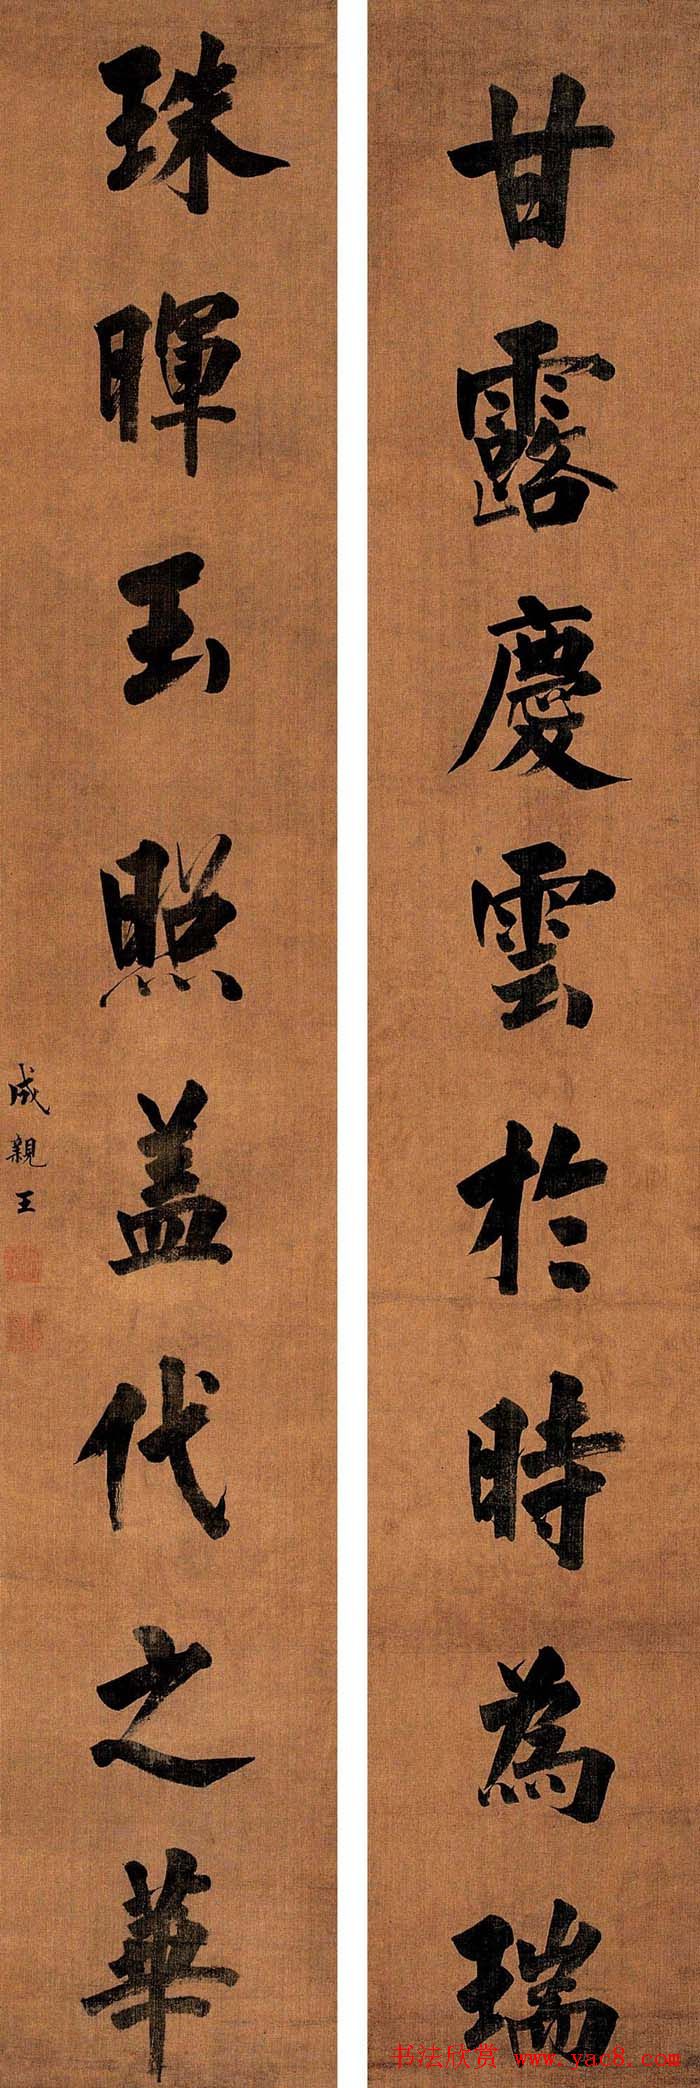 甘露慶雲於時為瑞
珠暉玉照盖代之華
成親王
书法欣赏 www.yac8.com